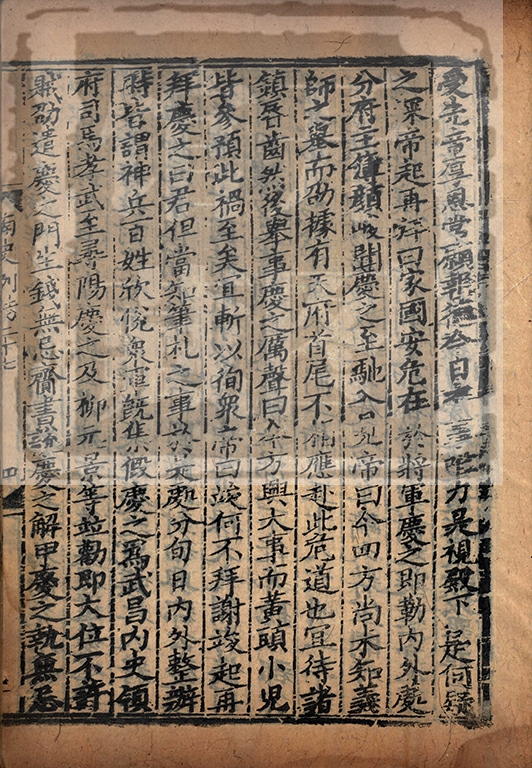 受先帝厚恩常願報德今日之 力是視殿下是何疑
之深帝起再拜曰家國安危在於將軍慶之即勒內外處
分府主簿顏竣聞慶之至馳入見帝曰今四方尚未知義
師之舉而劭據有天府首尾不相應赴此危道也宜待諸
鎮唇齒然後舉事慶之厲聲曰今方興大事而黃頭小兒
皆參預此禍至矣宜斬以徇眾帝曰竣何不拜謝竣起再
拜慶之曰君但當知筆札之事於是處分旬日內外整辦
時皆謂神兵百姓欣悅眾軍既集假慶之為武昌內史領
府司馬孝武至尋陽慶之及柳元景等並勸即大位不許
賊劭遣慶之門生錢無忌齎書說慶之解甲慶之執無忌
南史列傳二十七
四